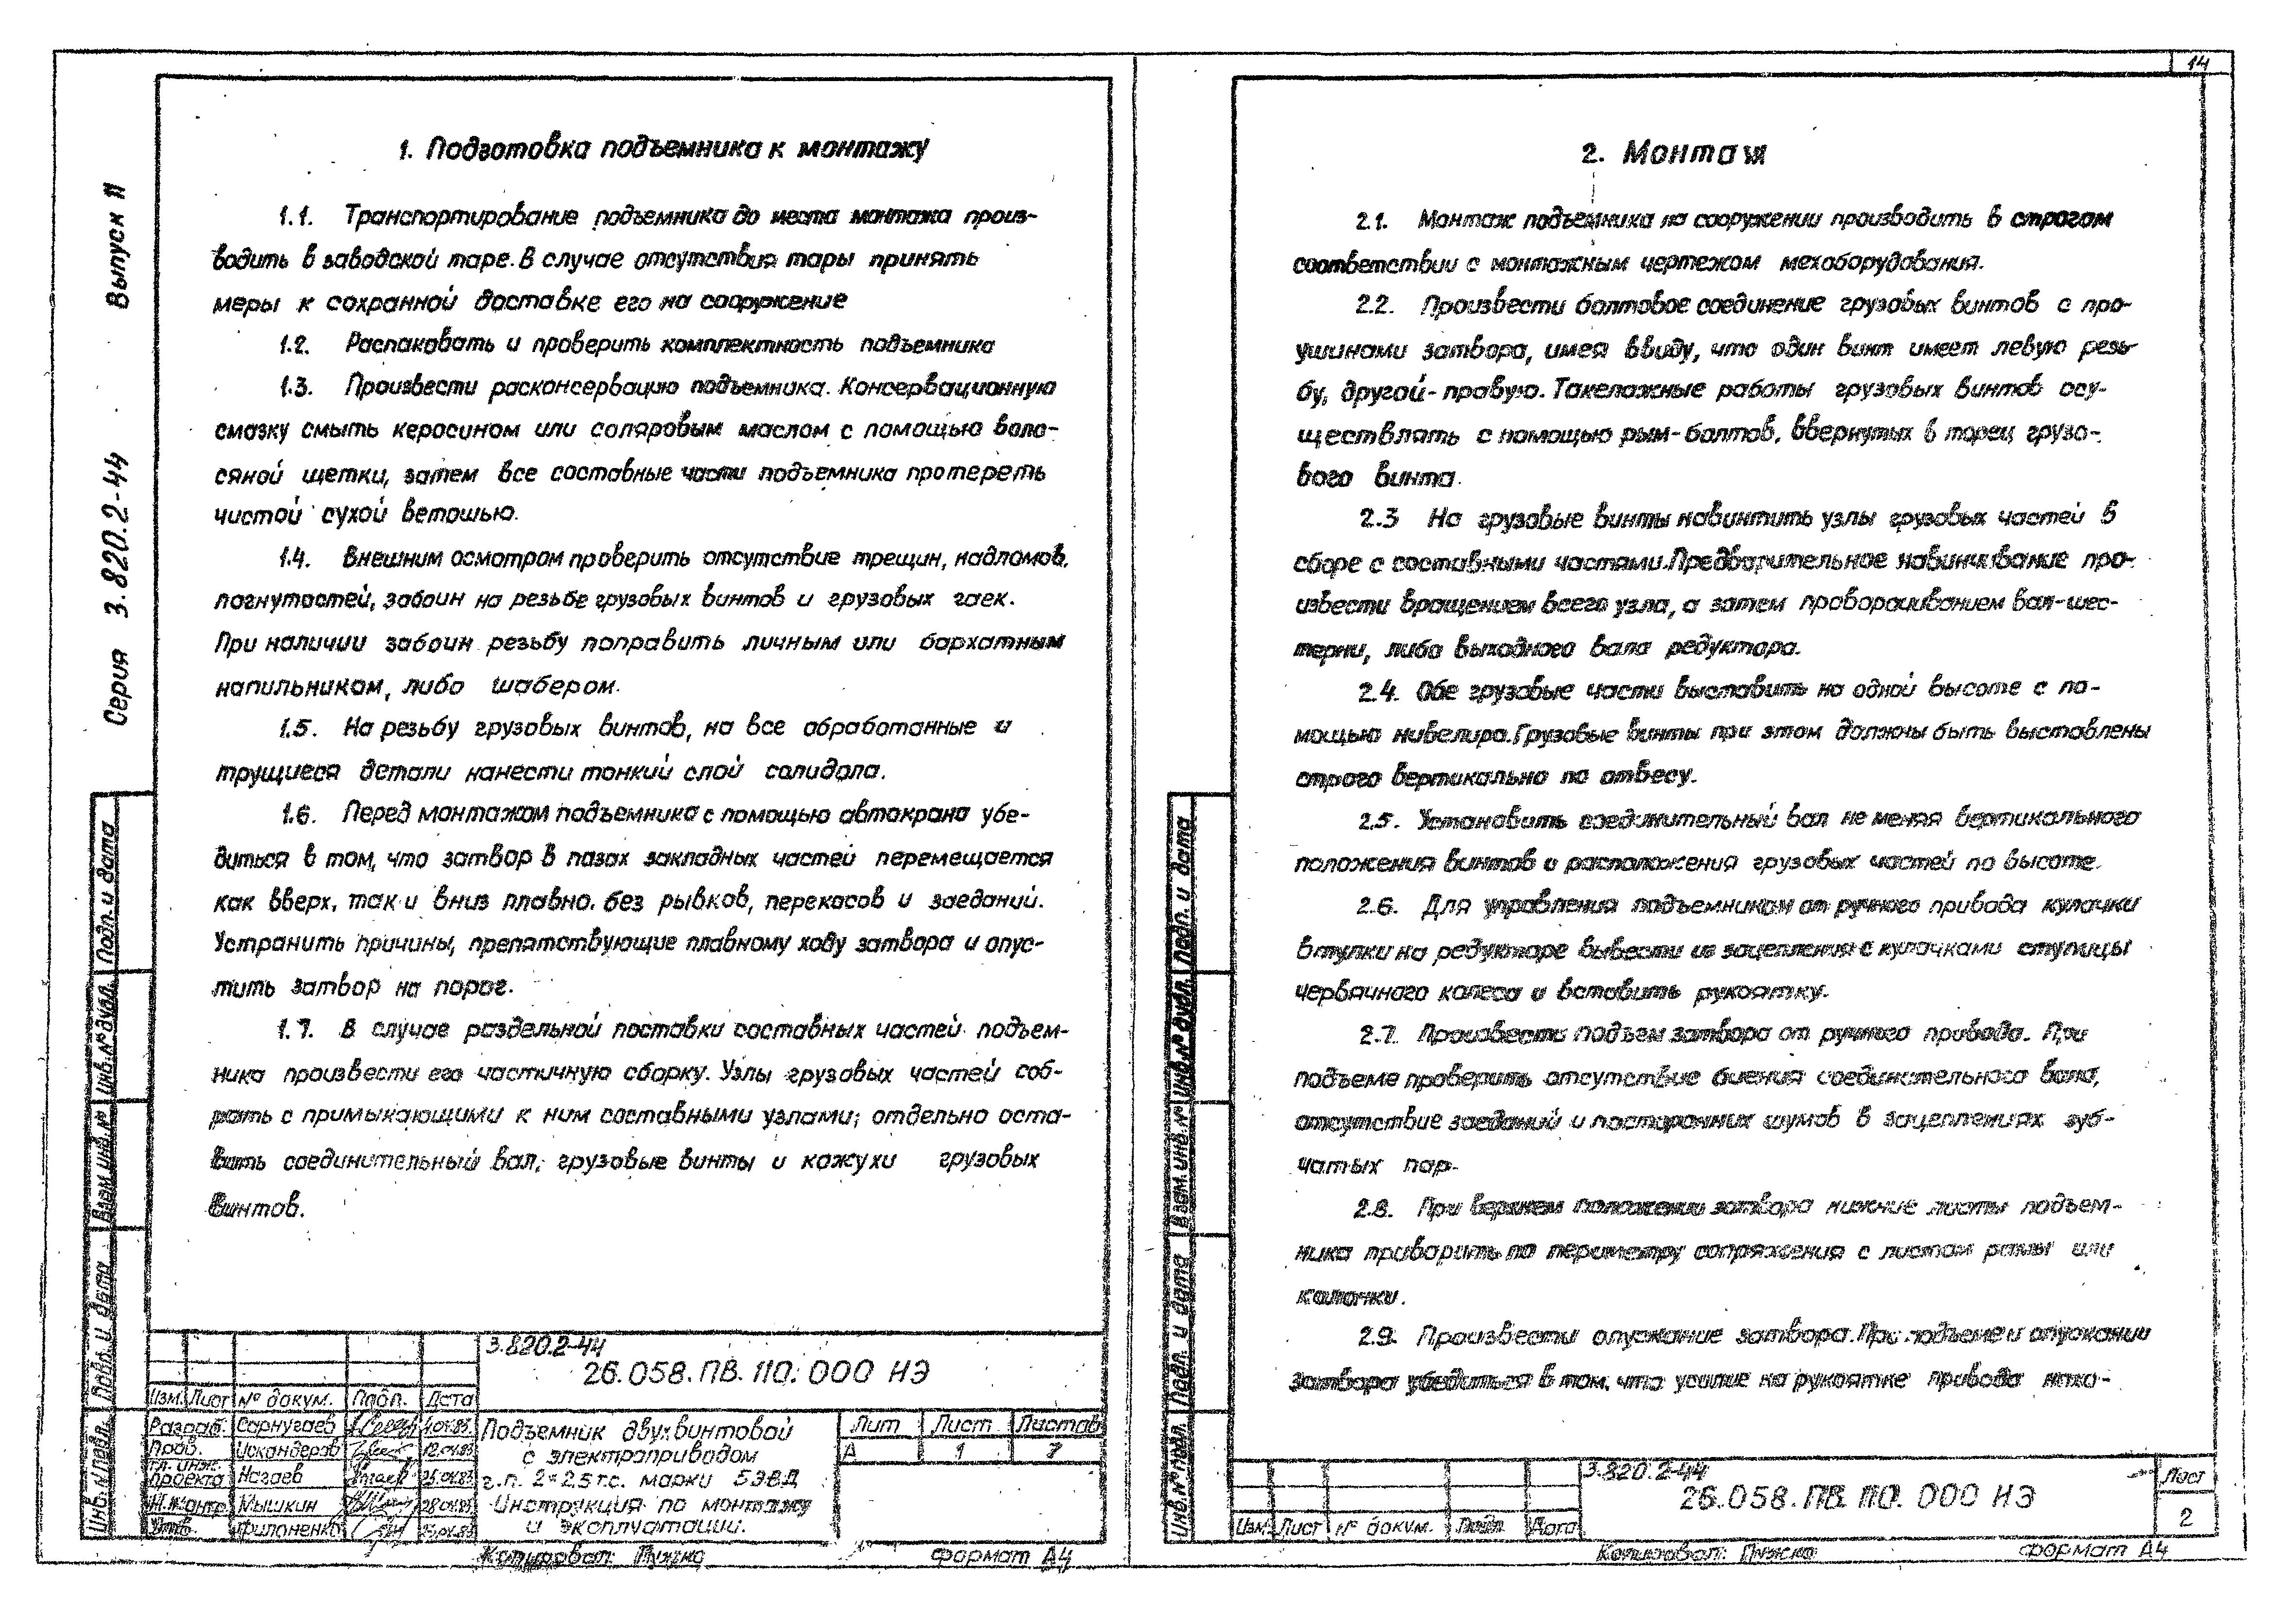 14
Серия 3.820.2-44 Выпуск 11
1. Подготовка подъемника к монтажу
1.1. Транспортирование подъемника до места монтажа произ-
водить в заводской таре. В случае отсутствия тары принять
меры к сохранной доставке его на сооружение
1.2. Распаковать и проверить комплектность подъемника
1.3. Произвести расконсервацию подъемника. Консервационную
смазку смыть керосином или соляровым маслом с помощью воло-
сяной щетки, затем все составные части подъемника протереть
чистой сухой ветошью.
1.4. Внешним осмотром проверить отсутствие трещин, надломов,
погнутостей, забоин на резьбе грузовых винтов и грузовых гаек.
При наличии забоин резьбу поправить личным или бархатным
напильником, либо шабером.
1.5. На резьбу грузовых винтов, на все обработанные и
трущиеся детали нанести тонкий слой солидола.
1.6. Перед монтажом подъемника с помощью автокрана убе-
диться в том, что затвор в пазах закладных частей перемещается
как вверх, так и вниз плавно, без рывков, перекосов и заеданий.
Устранить причины, препятствующие плавному ходу затвора и опус-
тить затвор на порог.
1.7. В случае раздельной поставки составных частей подъем-
ника произвести его частичную сборку. Узлы грузовых частей соб-
рать с примыкающими к ним составными узлами; отдельно оста-
вить соединительный вал, грузовые винты и кожухи грузовых
винтов.
Подп. и дата
Инв. № дубл.
Взам. инв. №
Подп. и дата
Инв. № подл.
3.820.2-44
26.058.ПВ.110.000 НЭ
Изм. Лист № докум. Подп. Дата
Разраб. Сарнугаев
Пров. Искандеров
Гл. инж. проекта Нагаев
Н.контр. Мышкин
Утв. Филоненко
Подъемник двухвинтовой
с электроприводом
г.п. 2×2,5 т.с. марки 5ЭВД
Инструкция по монтажу
и эксплуатации.
Лит Лист Листов
А 1 7
Копировал: Пужко формат А4
2. Монтаж
2.1. Монтаж подъемника на сооружении производить в строгом
соответствии с монтажным чертежом мехоборудования.
2.2. Произвести болтовое соединение грузовых винтов с про-
ушинами затвора, имея ввиду, что один винт имеет левую резь-
бу, другой - правую. Такелажные работы грузовых винтов осу-
ществлять с помощью рым-болтов, ввернутых в торец грузо-
вого винта.
2.3 На грузовые винты навинтить узлы грузовых частей в
сборе с составными частями. Предварительное навинчивание про-
извести вращением всего узла, а затем проворачиванием вал-шес-
терни, либо выходного вала редуктора.
2.4. Обе грузовые части выставить на одной высоте с по-
мощью нивелира. Грузовые винты при этом должны быть выставлены
строго вертикально по отвесу.
2.5. Установить соединительный вал не меняя вертикального
положения винтов и расположения грузовых частей по высоте.
2.6. Для управления подъемником от ручного привода кулачки
втулки на редукторе вывести из зацепления с кулачками ступицы
червячного колеса и вставить рукоятку.
2.7. Произвести подъем затвора от ручного привода. При
подъеме проверить отсутствие биения соединительного вала,
отсутствие заеданий и посторонних шумов в зацеплениях зуб-
чатых пар.
2.8. При верхнем положении затвора нижние листы подъем-
ника приварить по периметру сопряжения с листом рамы или
колонки.
2.9. Произвести опускание затвора. При подъеме и опускании
затвора убедиться в том, что усилие на рукоятке привода нахо-
Подп. и дата
Инв. № дубл.
Взам. инв. №
Подп. и дата
Инв. № подл.
3.820.2-44
26.058.ПВ.110.000 НЭ
Изм. Лист № докум. Подп. Дата
Лист
2
Копировал: Пужко формат А4